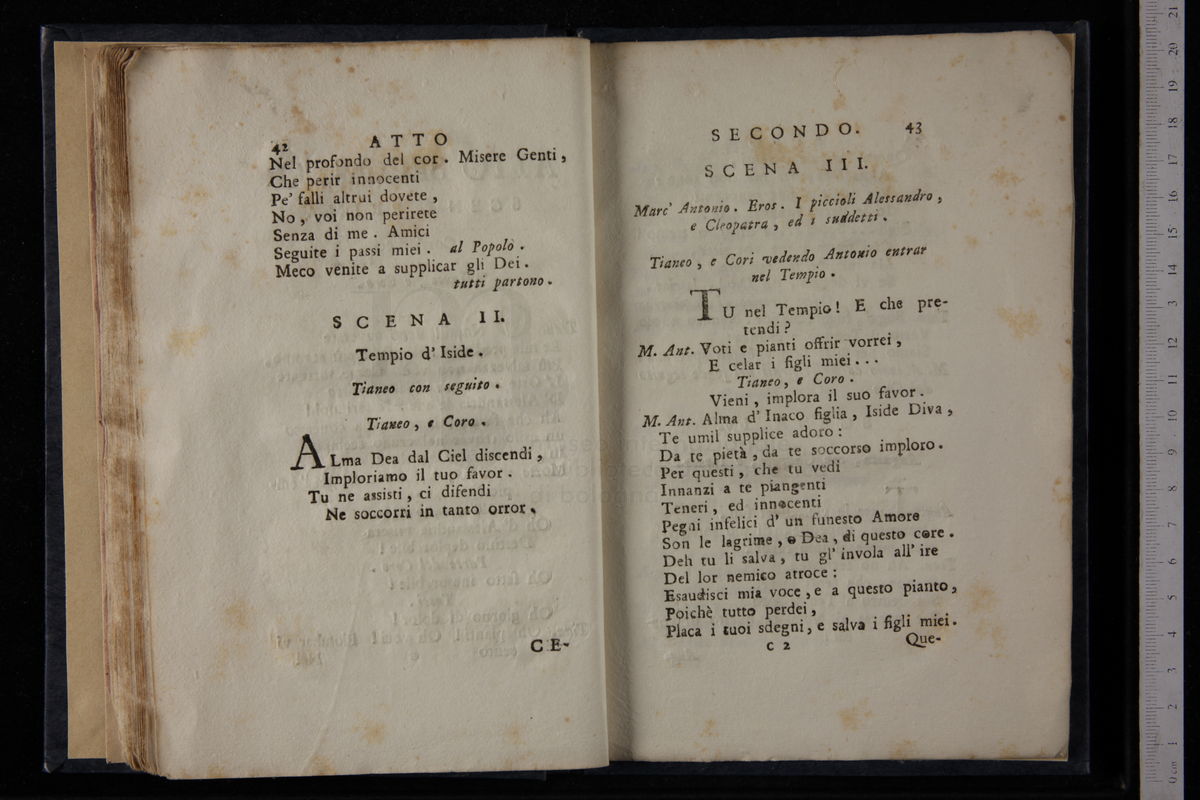 42 ATTO
Nel profondo del cor. Misere Genti,
Che perir innocenti
Pe' falli altrui dovete,
No, voi non perirete
Senza di me. Amici
Seguite i passi miei. al Popolo.
Meco venite a supplicar gli Dei.
tutti partono.
SCENA II.
Tempio d' Iside.
Tianeo con seguito.
Tianeo, e Coro.
ALma Dea dal Ciel discendi,
Imploriamo il tuo favor.
Tu ne assisti, ci difendi
Ne soccorri in tanto orror.
CE-
SECONDO. 43
SCENA III.
Marc' Antonio. Eros. I piccioli Alessandro,
e Cleopatra, ed i suddetti.
Tianeo, e Cori vedendo Antonio entrar
nel Tempio.
TU nel Tempio! E che pre-
tendi?
M. Ant. Voti e pianti offrir vorrei,
E celar i figli miei...
Tianeo, e Coro.
Vieni, implora il suo favor.
M. Ant. Alma d' Inaco figlia, Iside Diva,
Te umil supplice adoro:
Da te pietà, da te soccorso imploro.
Per questi, che tu vedi
Innanzi a te piangenti
Teneri, ed innocenti
Pegni infelici d' un funesto Amore
Son le lagrime, o Dea, di questo core.
Deh tu li salva, tu gl' invola all' ire
Del lor nemico atroce:
Esaudisci mia voce, e a questo pianto,
Poichè tutto perdei,
Placa i tuoi sdegni, e salva i figli miei.
C 2 Que-
0 cm 1 2 3 4 5 6 7 8 9 10 11 12 13 14 15 16 17 18 19 20 21